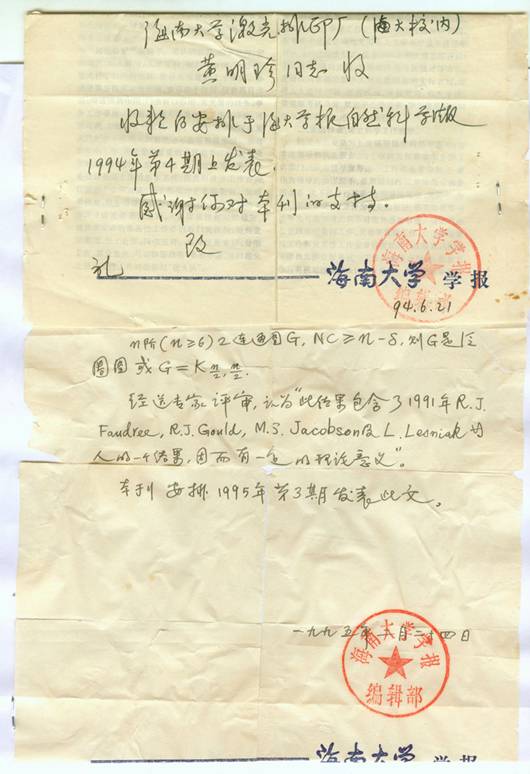 海南大学激光排印厂（海大校内）
黄明珍同志收
收款后安排于海大学报自然科学版
1994年第4期上发表。
感谢你对本刊的支持。
致
礼
海南大学学报
海南大学学报
编辑部
94.6.21
n阶(n≥6)2连通图G, NC≥n-δ, 则G是泛
圈图或G=K n/2, n/2.
经送专家评审，认为“此结果包含了1991年R.J.
Faudree, R.J. Gould, M.S. Jacobson及L. Lesniak四
人的一个结果，因而有一定的理论意义”。
本刊安排1995年第3期发表此文。
一九九五年二月二十四日
海南大学学报
编辑部
海南大学学报